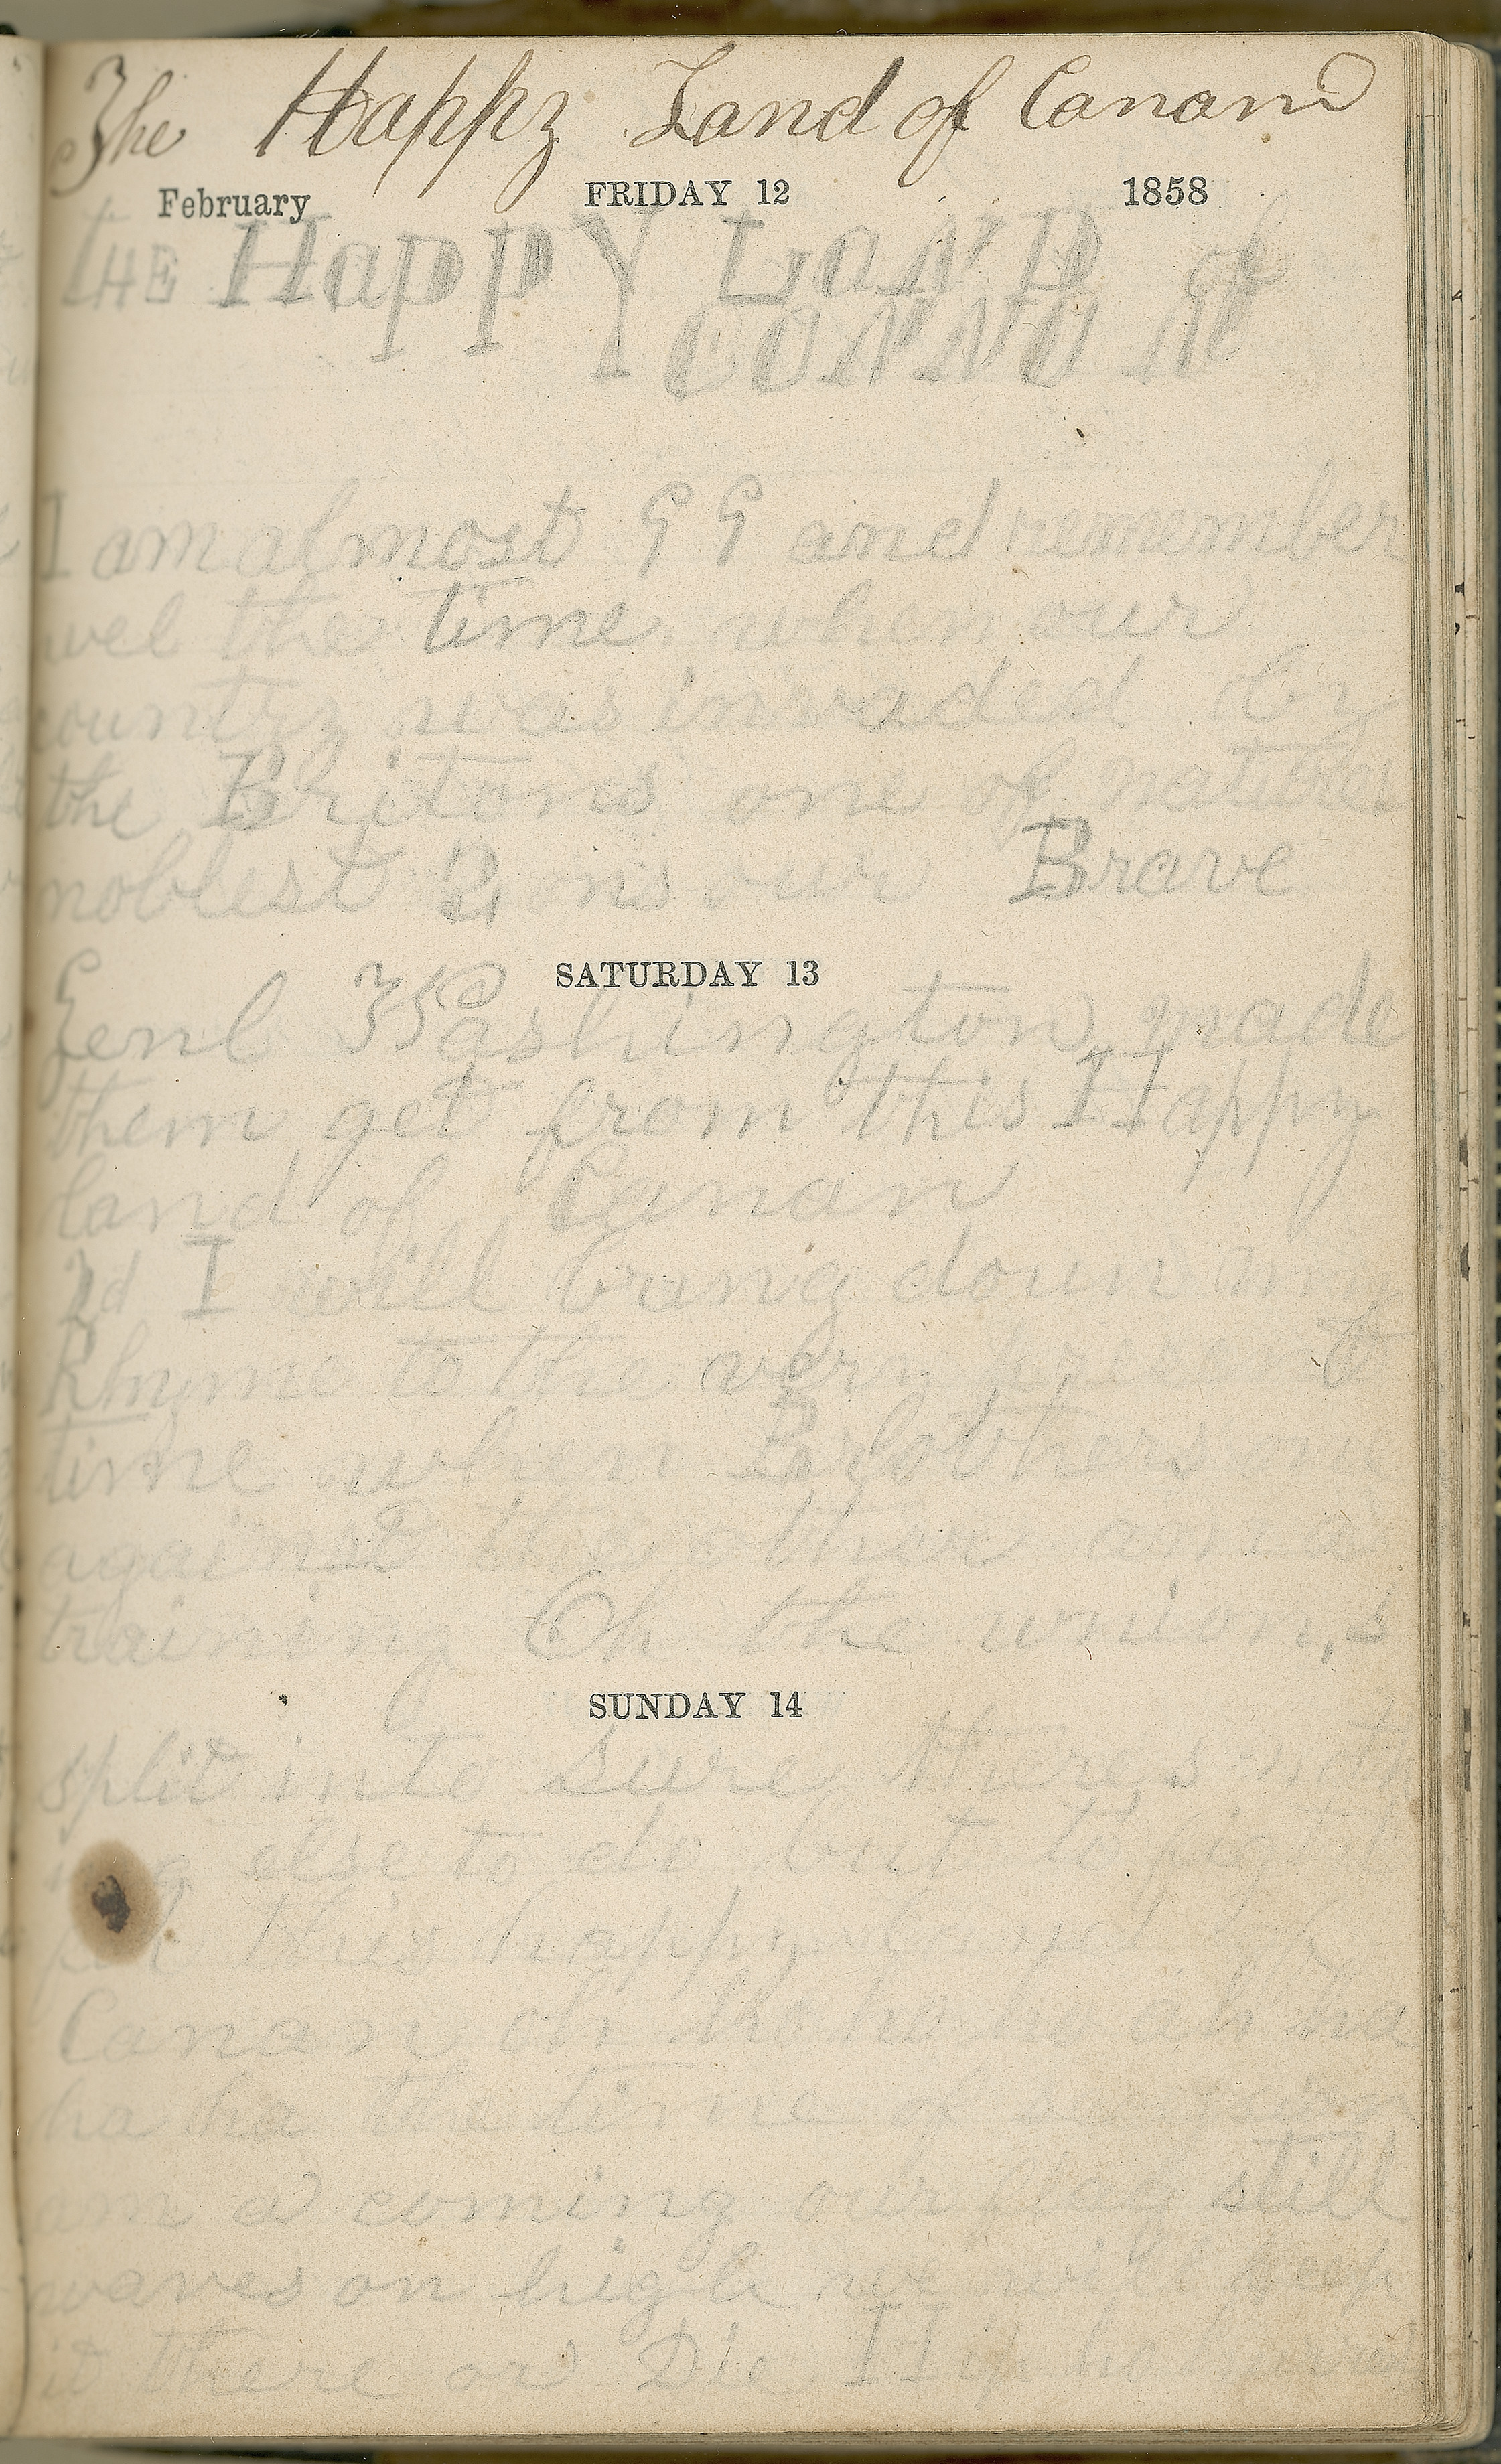 The Happy Land of Canan
February FRIDAY 12 1858
THE HappY LaND of
CONNU
I am almost 99 and remember
wel the time when our
country was invaded by
the Britons one of natures
noblest Sons our Brave
SATURDAY 13
Genl Washington made
them get from this Happy
land of Canan
2d I will bring down my
Rhyme to the very present
time when Brothers one
against the other am a
training Oh the union,s
SUNDAY 14
split into sure there,s noth
ing else to do but to fight
for this happy land of
Canan oh ho ho ho ah ha
ha ha the time of
am a coming our flag still
waves on high we will keep
it there or Die